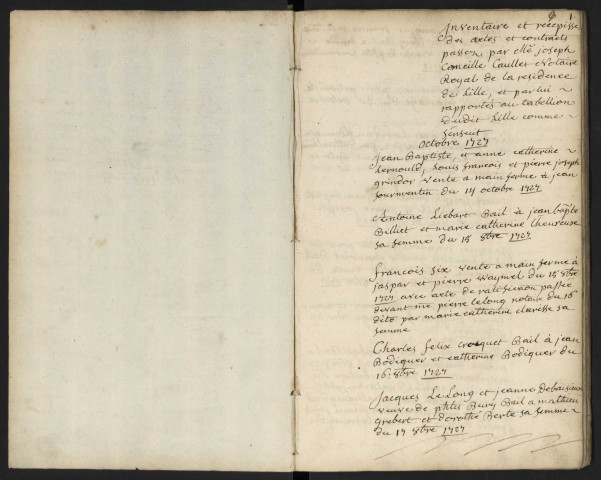 1.
Inventaire et recepisse
des actes et contracts
passez par Me Joseph
Corneille Caullet Notaire
Royal de la residence
de Lille, et par lui
rapportés au tabellion
dudit Lille comme
s'ensuit
Octobre 1727
Jean Baptiste, et anne catherine
Lernould, Louis francois et pierre joseph
grindor vente a main ferme à jean
fourmentin du 14 octobre 1727
Antoine Liebart Bail à jean bapte
Billiet et marie catherine Lheureuse
sa femme du 15 8bre 1727
francois six vente a main ferme à
jaspar et pierre waymel du 15 8bre
1727 avec acte de ratification passée
devant me pierre lelong notaire du 16
dito par marie catherine claresse sa
femme
Charles felix croquet Bail à jean
Bodiquer et catherine Bodiquer du
16 8bre 1727
Jacques Le Long et jeanne
veuve de Bury Bail a mathieu
grebert et dorothé Berte sa femme
du 17 8bre 1727